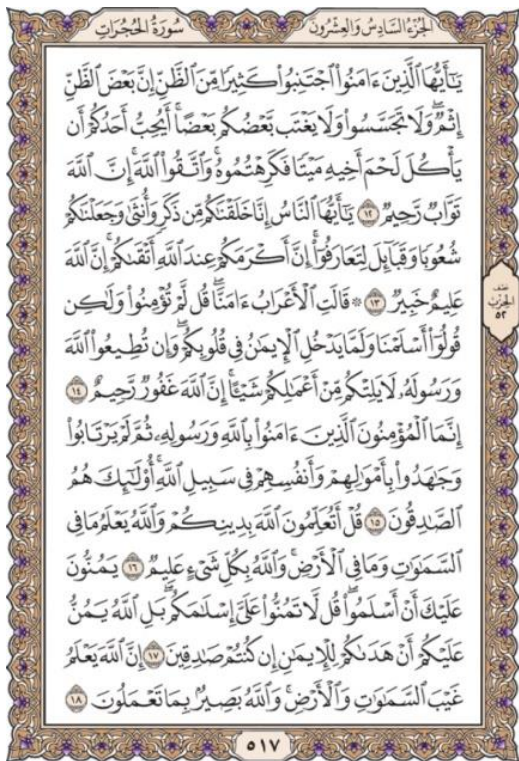 سُورَةُ الحُجُرَاتِ
الجُزْءُ السَّادِسُ وَالعِشْرُونَ
يَٰٓأَيُّهَا ٱلَّذِينَ ءَامَنُواْ ٱجْتَنِبُواْ كَثِيرًا مِّنَ ٱلظَّنِّ إِنَّ بَعْضَ ٱلظَّنِّ
إِثْمٌۖ وَلَا تَجَسَّسُواْ وَلَا يَغْتَب بَّعْضُكُم بَعْضًاۚ أَيُحِبُّ أَحَدُكُمْ أَن
يَأْكُلَ لَحْمَ أَخِيهِ مَيْتًا فَكَرِهْتُمُوهُۚ وَٱتَّقُواْ ٱللَّهَۚ إِنَّ ٱللَّهَ
تَوَّابٌ رَّحِيمٌ ١٢ يَٰٓأَيُّهَا ٱلنَّاسُ إِنَّا خَلَقْنَٰكُم مِّن ذَكَرٍ وَأُنثَىٰ وَجَعَلْنَٰكُمْ
شُعُوبًا وَقَبَآئِلَ لِتَعَارَفُوٓاْۚ إِنَّ أَكْرَمَكُمْ عِندَ ٱللَّهِ أَتْقَىٰكُمْۚ إِنَّ ٱللَّهَ
عَلِيمٌ خَبِيرٌ ١٣ ۞ قَالَتِ ٱلْأَعْرَابُ ءَامَنَّاۖ قُل لَّمْ تُؤْمِنُواْ وَلَٰكِن
قُولُوٓاْ أَسْلَمْنَا وَلَمَّا يَدْخُلِ ٱلْإِيمَٰنُ فِي قُلُوبِكُمْۖ وَإِن تُطِيعُواْ ٱللَّهَ
وَرَسُولَهُۥ لَا يَلِتْكُم مِّنْ أَعْمَٰلِكُمْ شَيْـًٔاۚ إِنَّ ٱللَّهَ غَفُورٌ رَّحِيمٌ ١٤
إِنَّمَا ٱلْمُؤْمِنُونَ ٱلَّذِينَ ءَامَنُواْ بِٱللَّهِ وَرَسُولِهِۦ ثُمَّ لَمْ يَرْتَابُواْ
وَجَٰهَدُواْ بِأَمْوَٰلِهِمْ وَأَنفُسِهِمْ فِي سَبِيلِ ٱللَّهِۚ أُوْلَٰٓئِكَ هُمُ
ٱلصَّٰدِقُونَ ١٥ قُلْ أَتُعَلِّمُونَ ٱللَّهَ بِدِينِكُمْ وَٱللَّهُ يَعْلَمُ مَا فِي
ٱلسَّمَٰوَٰتِ وَمَا فِي ٱلْأَرْضِۚ وَٱللَّهُ بِكُلِّ شَيْءٍ عَلِيمٌ ١٦ يَمُنُّونَ
عَلَيْكَ أَنْ أَسْلَمُواْۖ قُل لَّا تَمُنُّواْ عَلَيَّ إِسْلَٰمَكُمۖ بَلِ ٱللَّهُ يَمُنُّ
عَلَيْكُمْ أَنْ هَدَىٰكُمْ لِلْإِيمَٰنِ إِن كُنتُمْ صَٰدِقِينَ ١٧ إِنَّ ٱللَّهَ يَعْلَمُ
غَيْبَ ٱلسَّمَٰوَٰتِ وَٱلْأَرْضِۚ وَٱللَّهُ بَصِيرٌۢ بِمَا تَعْمَلُونَ ١٨
نصف
الحزب
٥٢
٥١٧